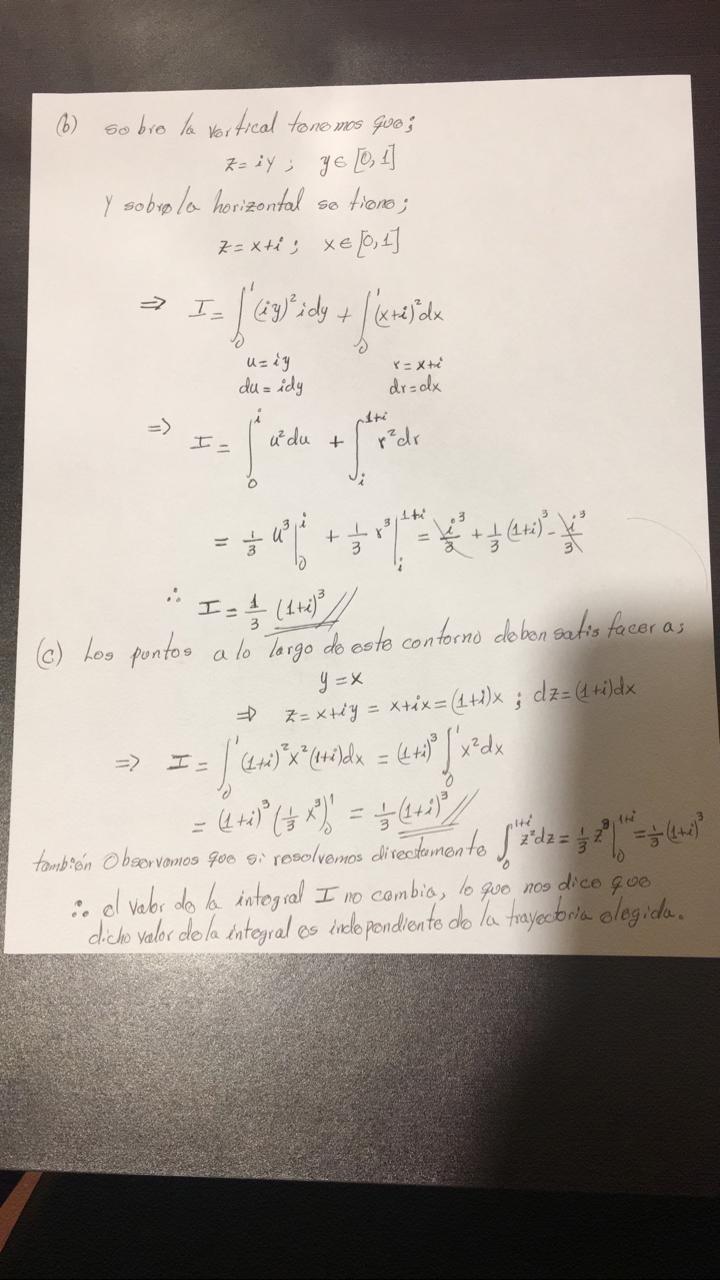 (b) sobre la vertical tenemos que;
z = iy ; y ∈ [0,1]
Y sobre la horizontal se tiene;
z = x+i ; x ∈ [0,1]
⇒ I = ∫₀¹ (iy)² i dy + ∫₀¹ (x+i)² dx
u = iy r = x+i
du = idy dr = dx
⇒ I = ∫₀ⁱ u² du + ∫ᵢ¹⁺ⁱ r² dr
= 1/3 u³ |₀ⁱ + 1/3 r³ |ᵢ¹⁺ⁱ = i³/3 + 1/3 (1+i)³ - i³/3
∴ I = 1/3 (1+i)³ //
(c) Los puntos a lo largo de este contorno deben satisfacer a;
y = x
⇒ z = x+iy = x+ix = (1+i)x ; dz = (1+i)dx
⇒ I = ∫₀¹ (1+i)² x² (1+i)dx = (1+i)³ ∫₀¹ x² dx
= (1+i)³ (1/3 x³)₀¹ = 1/3 (1+i)³ //
también Observamos que si resolvemos directamente ∫₀¹⁺ⁱ z² dz = 1/3 z³ |₀¹⁺ⁱ = 1/3 (1+i)³
∴ el valor de la integral I no cambia, lo que nos dice que
dicho valor de la integral es independiente de la trayectoria elegida.